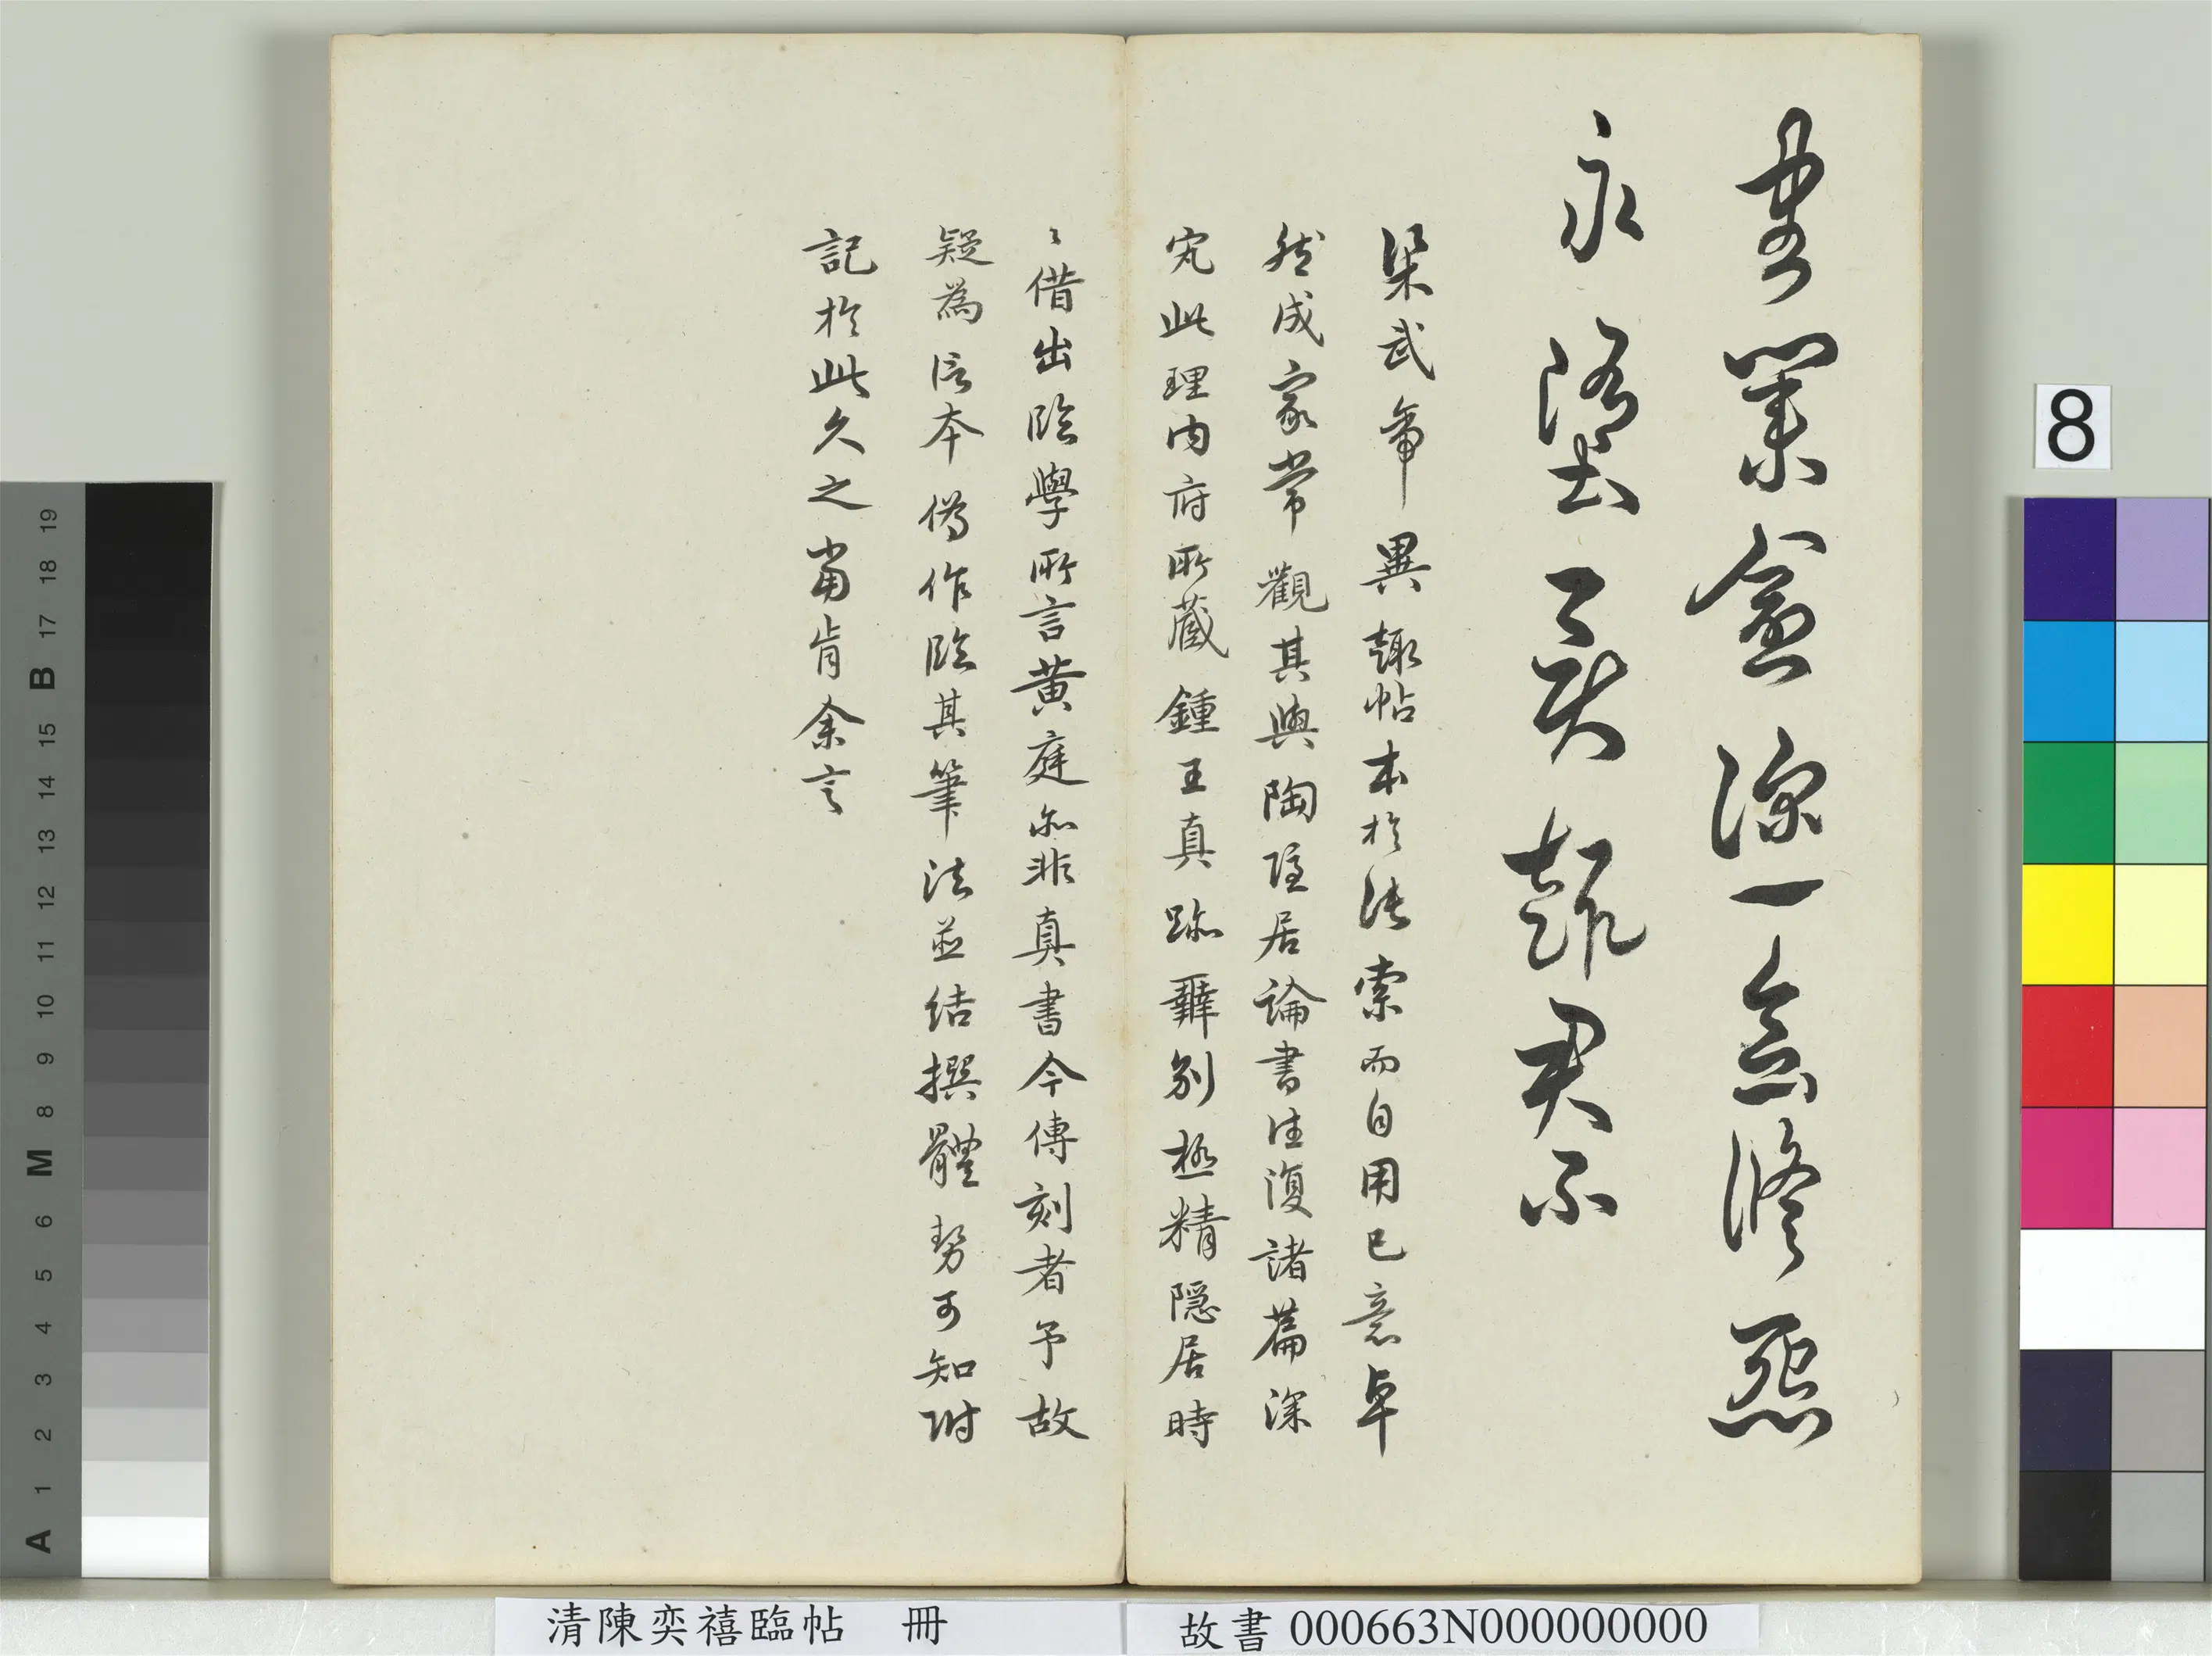 愛業愈深一念修怨
永墮異趣君不
梁武帝異趣帖本於張索而自用已意卓
然成家常觀其與陶隱居論書往復諸篇深
究此理内府所藏鍾王真跡辨别極精隱居時
〻借出臨學所言黄庭亦非真書今傳刻者予故
疑為後本偽作臨其筆法並結撰體勢可知附
記於此久之當肯余言
清陳奕禧臨帖 冊
故書 000663N000000000
8
A 1 2 3 4 5 6 M 8 9 10 11 12 13 14 15 B 17 18 19